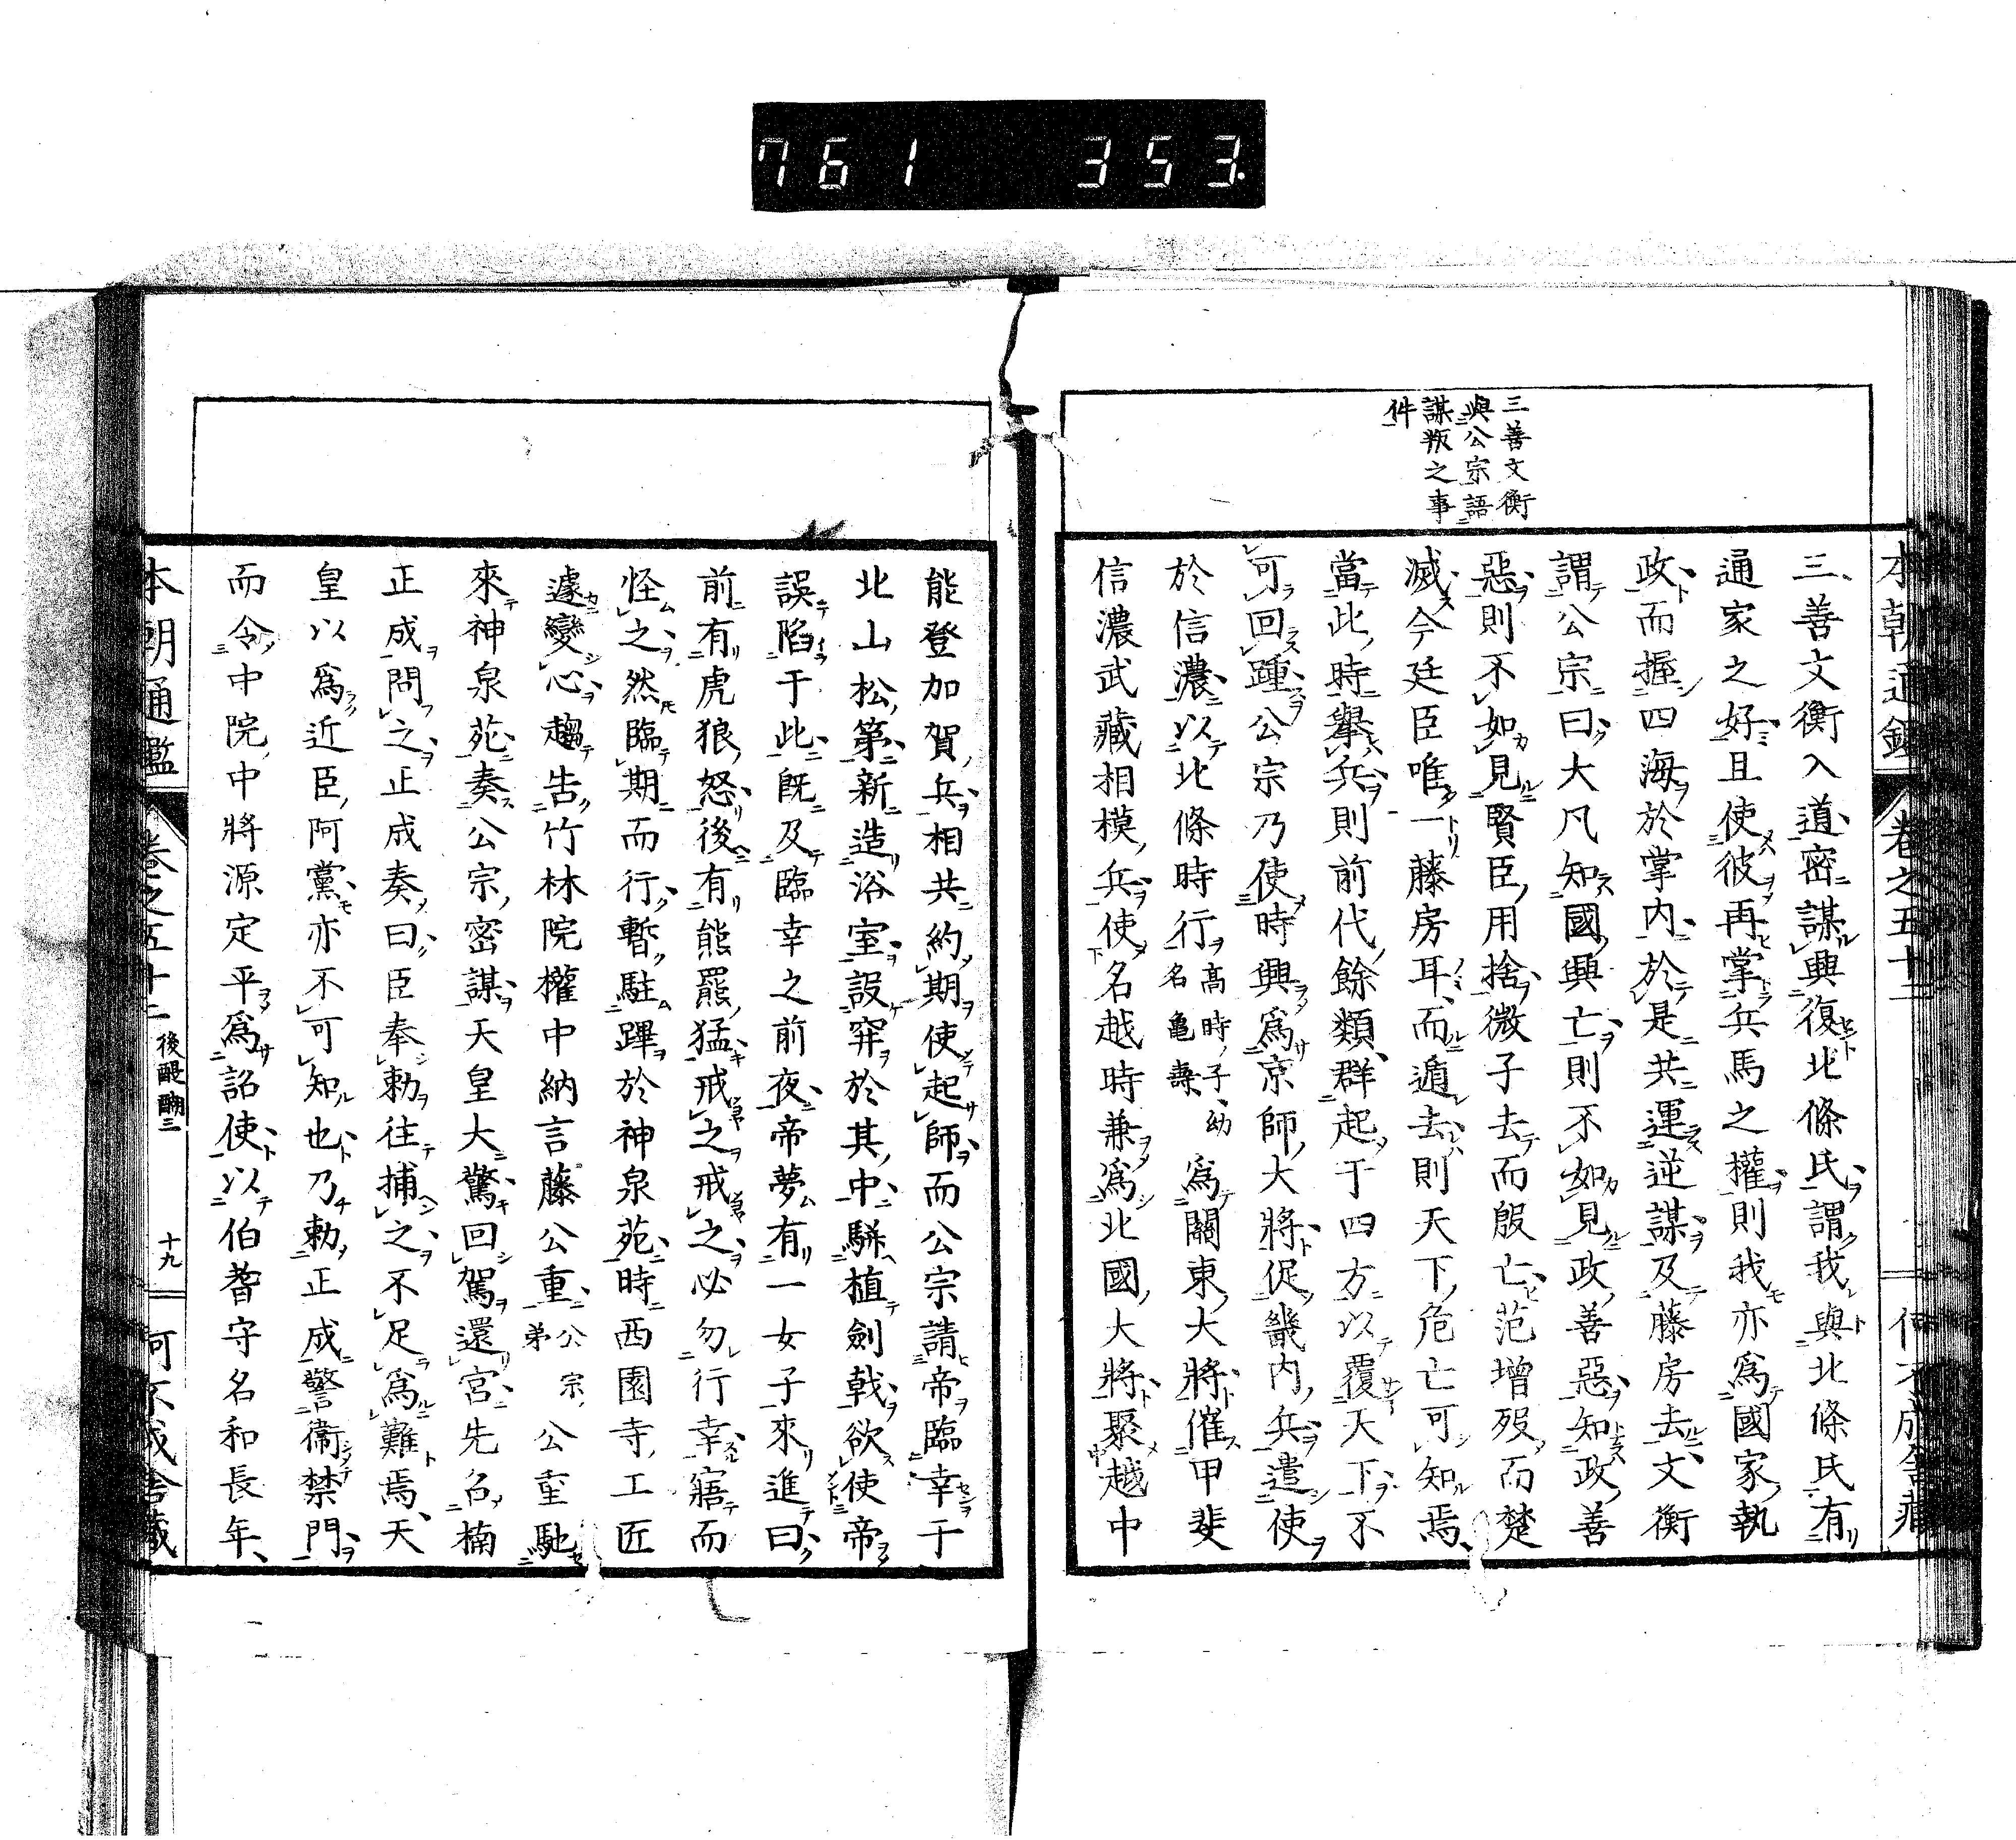 761 353
本朝通鑑
卷之五十二
何不成舍藏
三善文衡
與公宗語
謀叛之事
件
三善文衡入道密謀興復北條氏謂我與北條氏有
通家之好且使彼再掌兵馬之權則我亦爲國家執
政而握四海於掌內於是共運逆謀及藤房去文衡
謂公宗曰大凡知國興亡則不如見政善惡知政善
惡則不如見賢臣用捨微子去而殷亡范增歿而楚
滅今廷臣唯一藤房耳而遁去則天下危亡可知焉
當此時擧兵則前代餘類群起于四方以覆天下不
可回踵公宗乃使時興爲京師大將促畿內兵遣使
於信濃以北條時行高時子幼名亀壽爲關東大將催甲斐
信濃武藏相模兵使名越時兼爲北國大將聚越中
能登加賀兵相共約期使起師而公宗請帝臨幸于
北山松第新造浴室設穽於其中駢植劍戟欲使帝
誤陷于此既及臨幸之前夜帝夢有一女子來進曰
前有虎狼怒後有熊羆猛戒之戒之必勿行幸寤而
怪之然臨期而行暫駐蹕於神泉苑時西園寺工匠
遽變心趨告竹林院權中納言藤公重公宗弟公重馳
來神泉苑奏公宗密謀天皇大驚回駕還宮先召楠
正成問之正成奏曰臣奉勅往捕之不足爲難焉天
皇以爲近臣阿黨亦不可知也乃勅正成警衞禁門
而令中院中將源定平爲詔使以伯耆守名和長年
本朝通鑑
卷之五十二
後醍醐三
十九
何不成舍藏